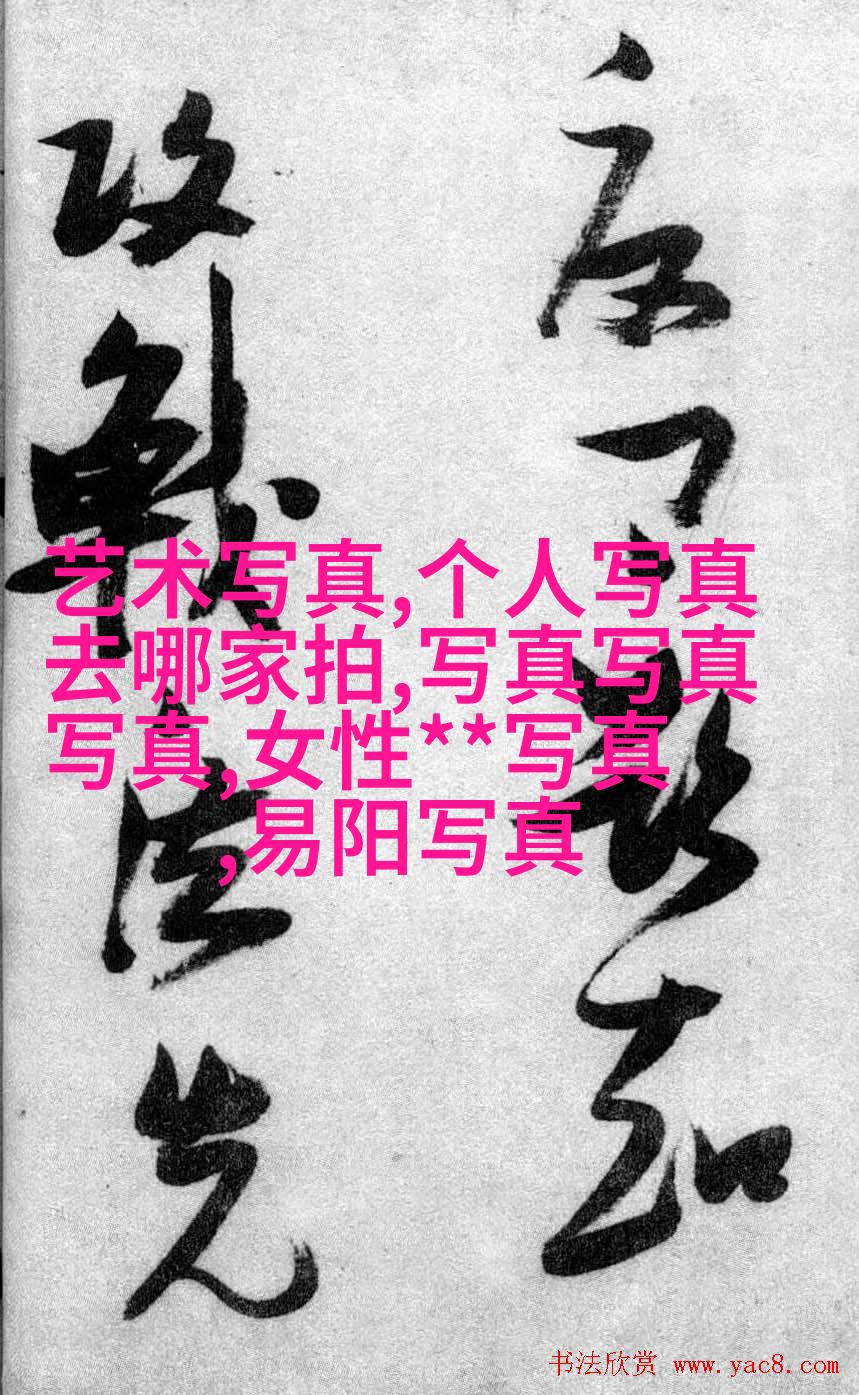 知
攻戰先
艺术写真,个人写真
去哪家拍,写真写真
写真,女性**写真
,易阳写真
书法欣赏 www.yac8.com